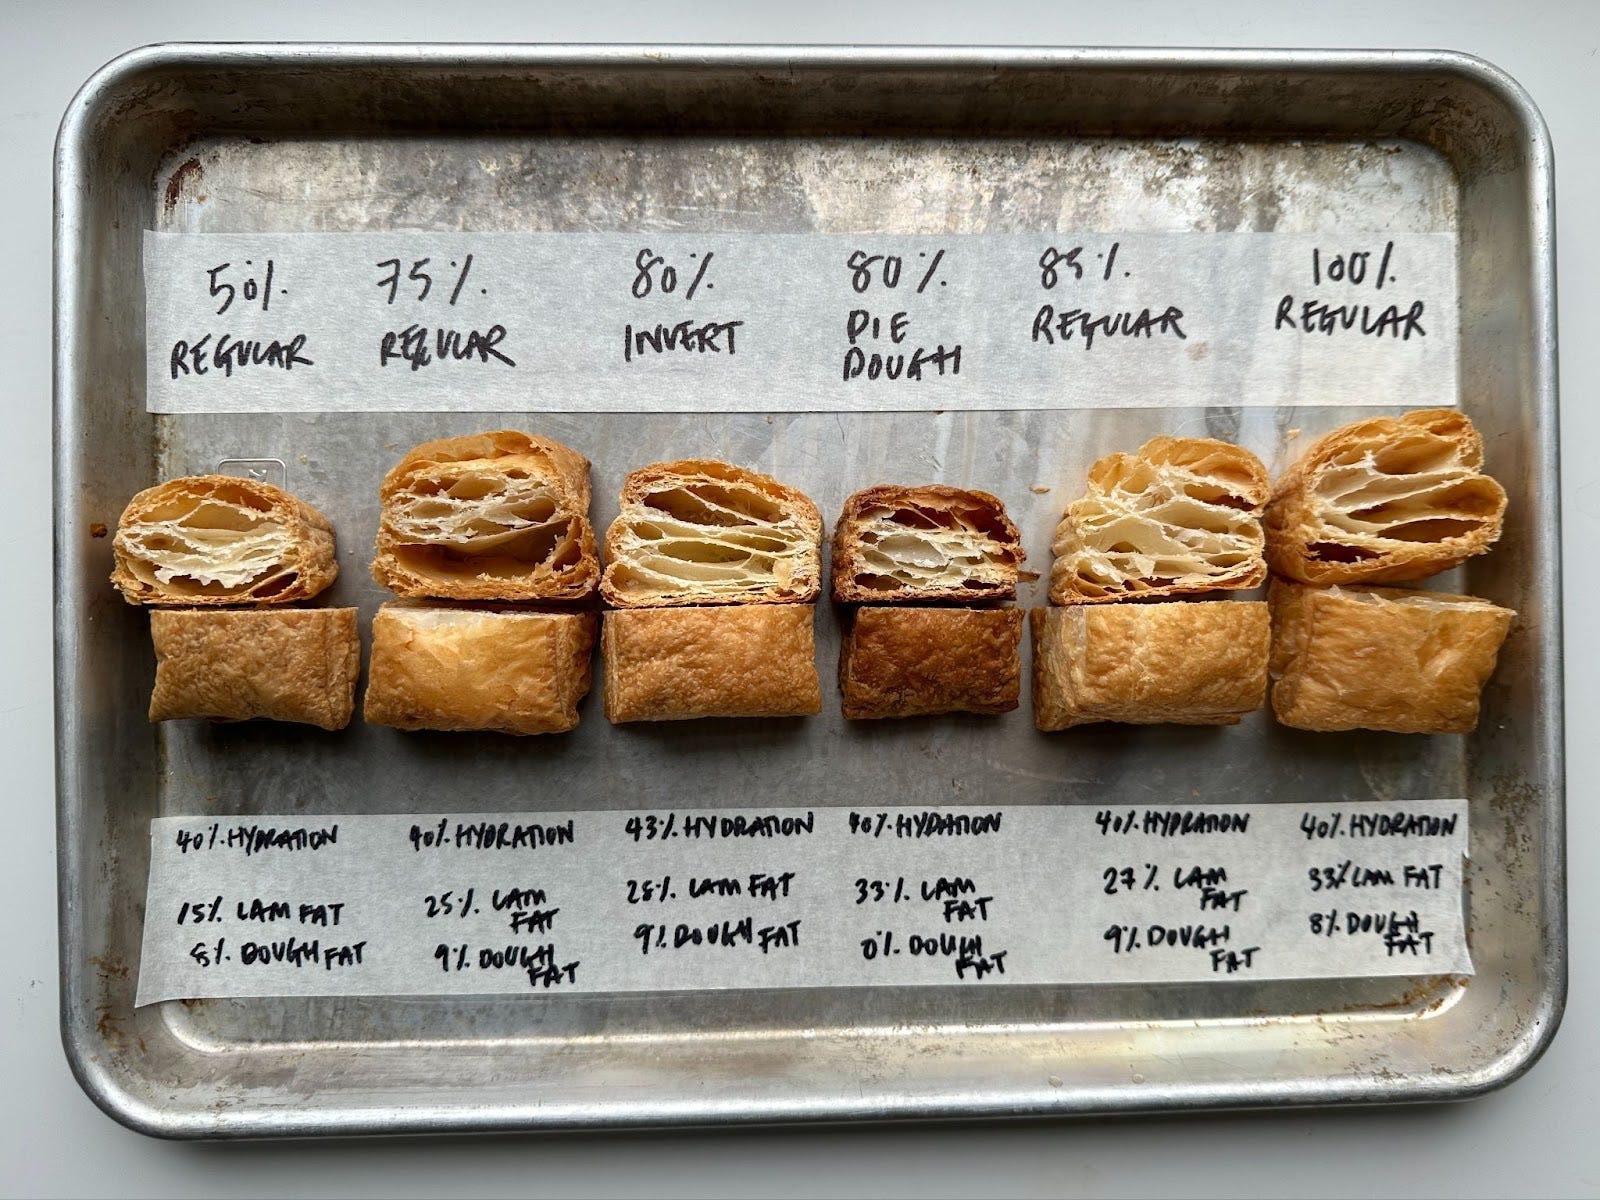 50%
REGULAR
75%
REGULAR
80%
INVERT
80%
PIE
DOUGH
85%
REGULAR
100%
REGULAR
40% HYDRATION
15% LAM FAT
8% DOUGH FAT
40% HYDRATION
25% LAM
FAT
9% DOUGH
FAT
43% HYDRATION
28% LAM FAT
9% DOUGH FAT
40% HYDRATION
33% LAM
FAT
0% DOUGH
FAT
40% HYDRATION
27% LAM
FAT
9% DOUGH
FAT
40% HYDRATION
33% LAM FAT
8% DOUGH
FAT